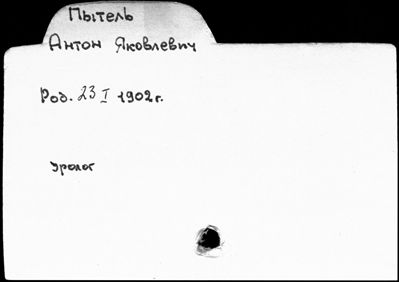 Пытель
Антон Яковлевич
Род. 23 I 1902 г.
уролог